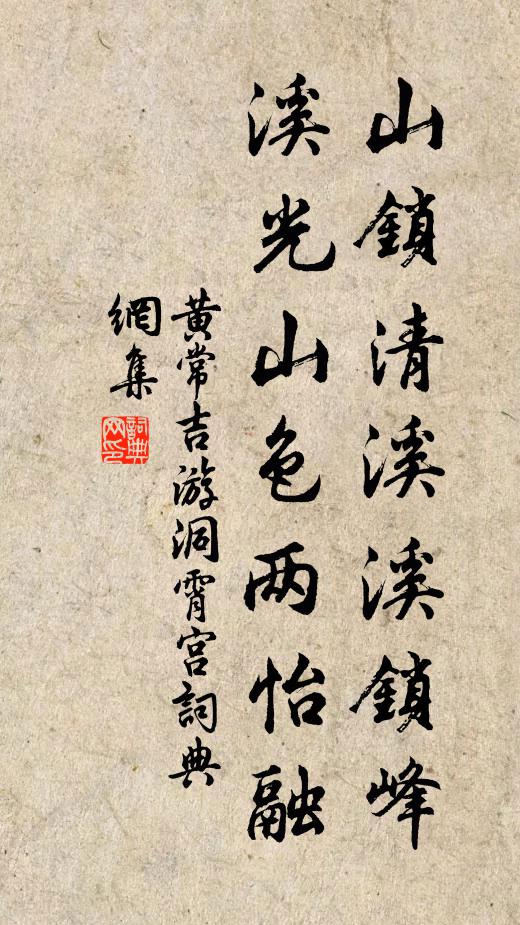 山鎖清溪溪鎖峰
溪光山色两怡融
黃常吉游洞霄宫詞典
網集
詞典
网印